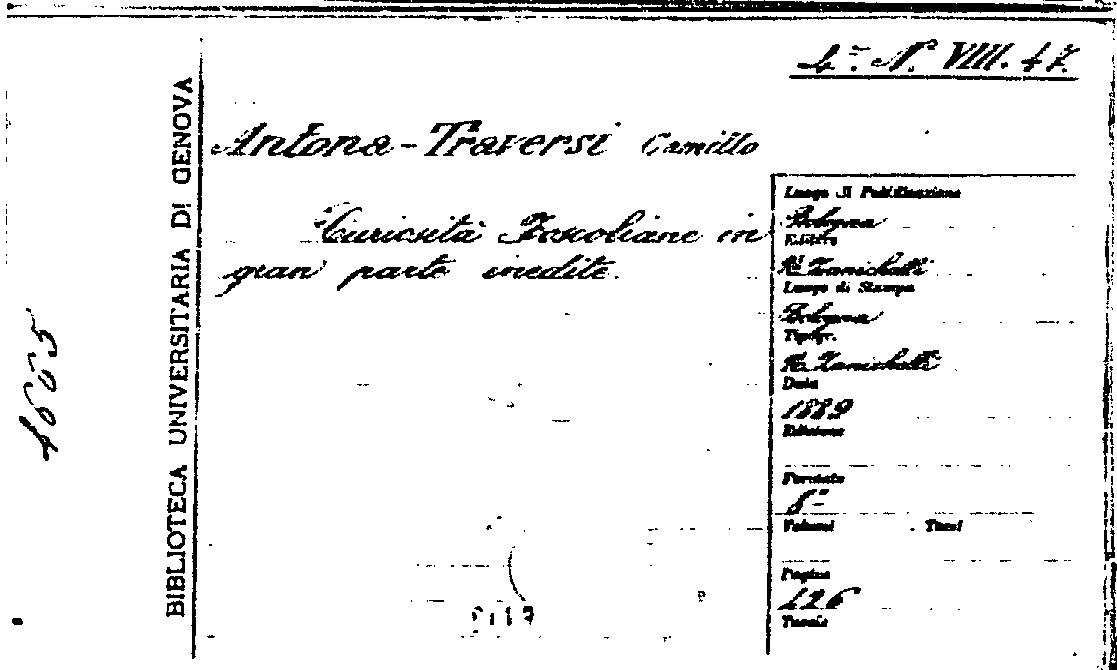 N.º VIII. 47.
Antona-Traversi Camillo
Curiosità Foscoliane in
gran parte inedite.
Luogo di Pubblicazione
Bologna
Editore
N. Zanichelli
Luogo di Stampa
Bologna
Tipogr.
N. Zanichelli
Data
1889
Edizione
Formato
8º
Volumi Tomi
Pagine
126
Tavole
BIBLIOTECA UNIVERSITARIA DI GENOVA